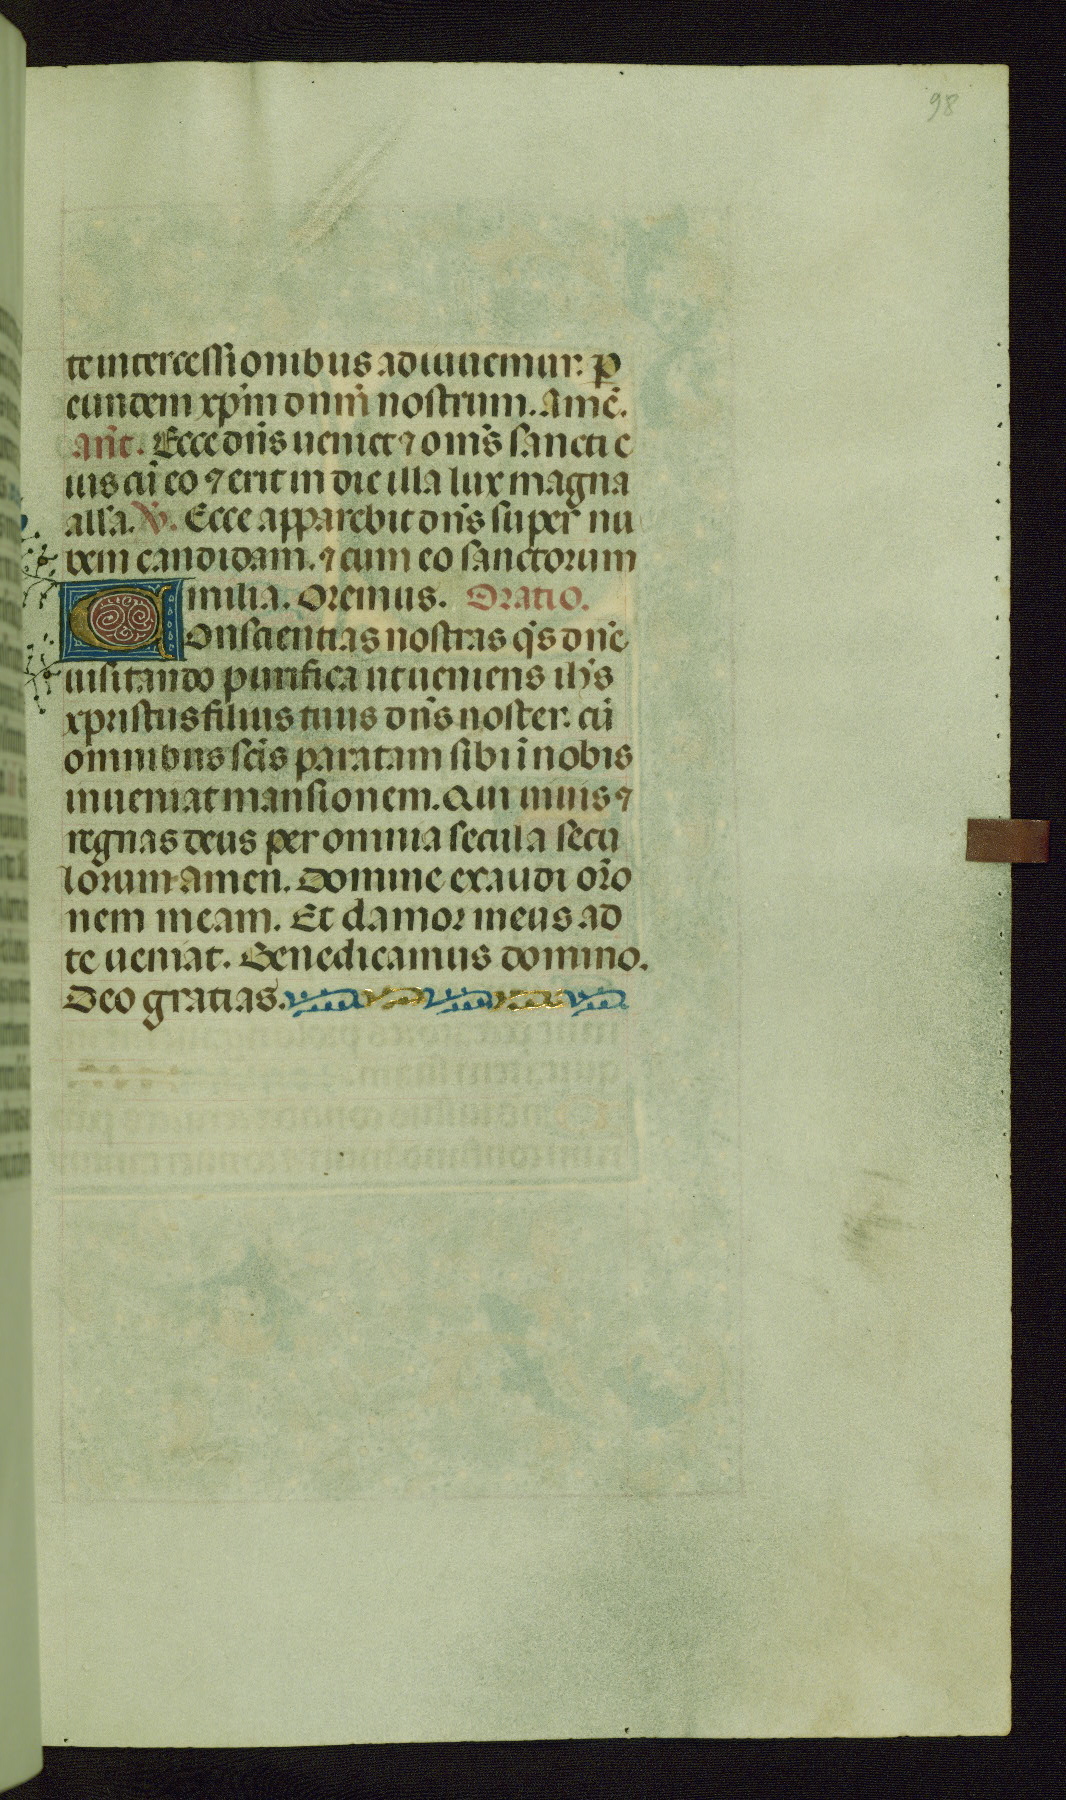 98
te intercessionibus adiuuemur. p
eundem xp̄m dnm̄ nostrum. Amē.
Añt. Ecce dn̄s ueniet ⁊ om̄s sancti e
ius cū eo ⁊ erit in die illa lux magna
all'a. V̄. Ecce apparebit dn̄s super nu
bem candidam. ⁊ cum eo sanctorum
milia. Oremus. Oratio.
Conscientias nostras q̄s dn̄e
uisitando purifica ut ueniens ih̄s
xpristus filius tuus dn̄s noster. cū
omnibus sc̄is paratam sibi ī nobis
inueniat mansionem. Qui uiuis ⁊
regnas deus per omnia secula secu
lorum amen. Domine exaudi or̄o
nem meam. Et clamor meus ad
te ueniat. Benedicamus domino.
Deo gratias.